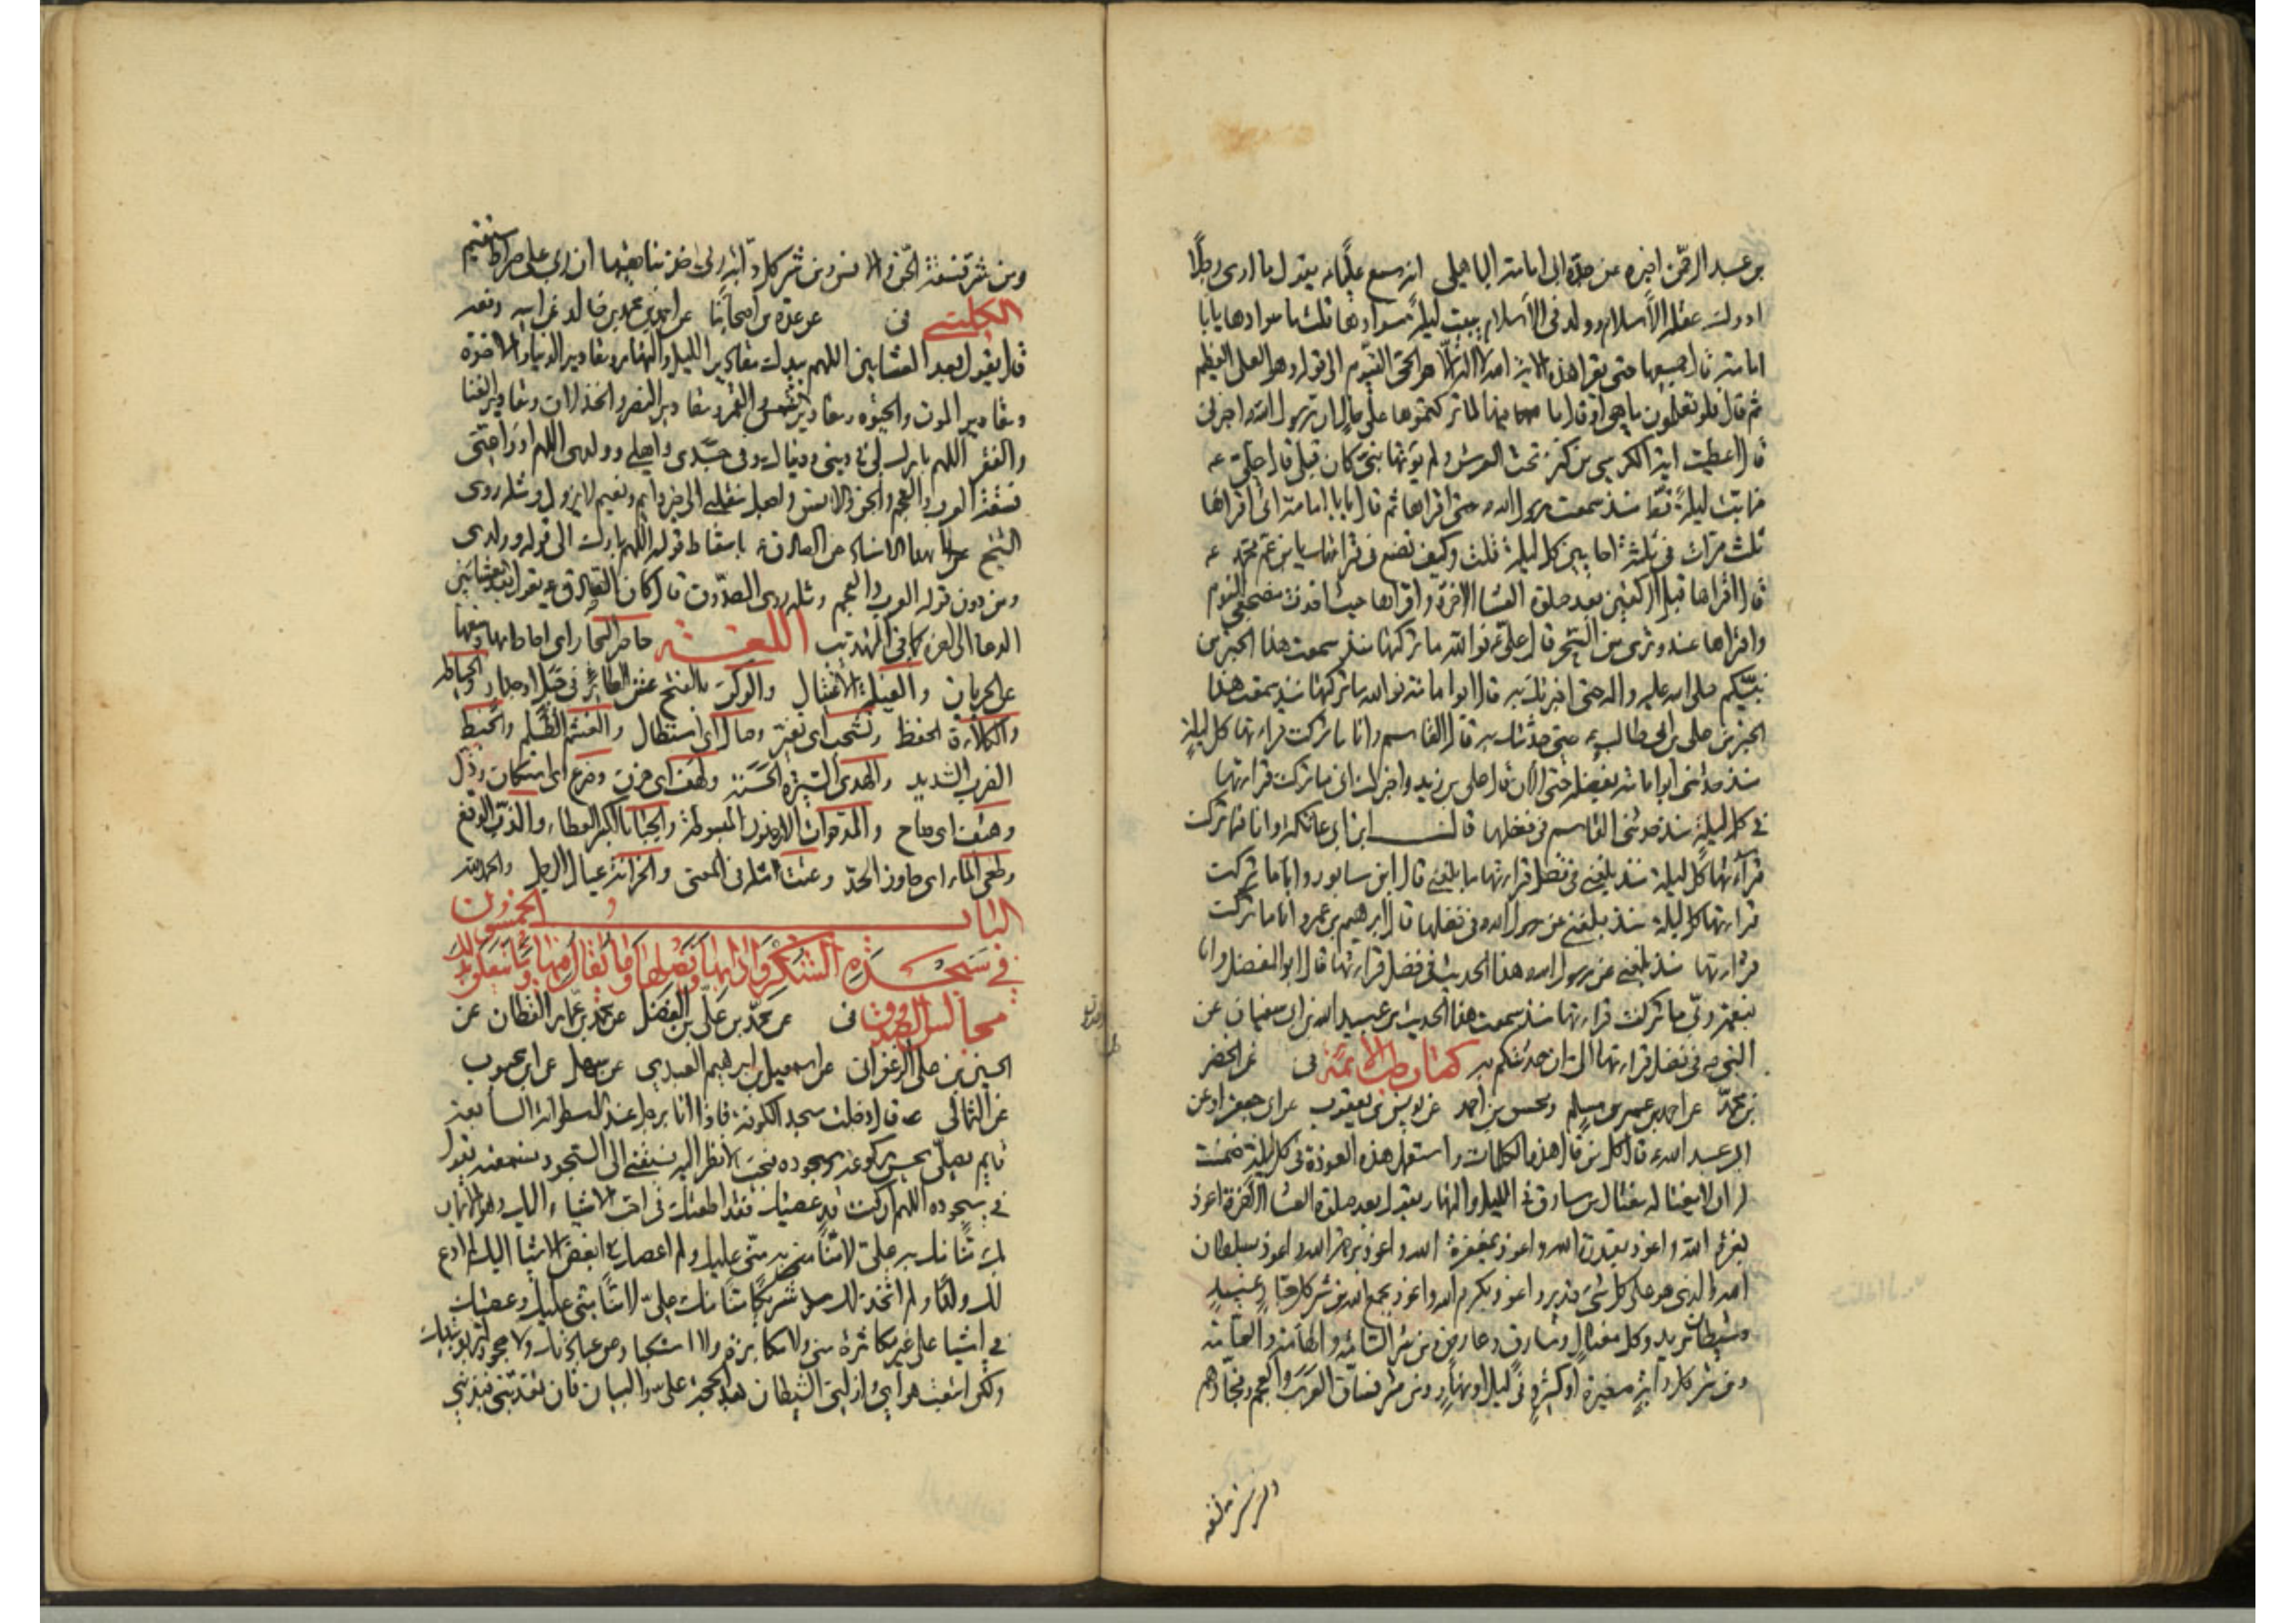 بن عبد الرحمن اخبره عن جده ابى امامة الباهلى انه سمع عليا ع يقول ما ارى رجلا
ادرك عقله الاسلام وولد فى الاسلام يبيت ليلة سوادها قلت ما سوادها يا ابا
امامة قال جميعها حتى يقرا هذه الاية الله لا اله الا هو الحى القيوم الى قوله وهو العلى العظيم
ثم قال فلو تعلمون ما هى او قال ما فيها لما تركتموها على حال ان رسول الله اخبرنى
قال اعطيت اية الكرسى من كنز تحت العرش ولم يؤتها نبى كان قبلى قال على ع
فما بت ليلة قط منذ سمعت رسول الله حتى اقراها ثم قال يا ابا امامة انى اقراها
ثلث مرات فى ثلثة احايين كل ليلة قلت وكيف تصنع فى قراءتها يا بن عم محمد
قال اقراها قبل الركعتين بعد صلوة العشا الاخرة واقراها حيث اخذت مضجعى للنوم
واقراها عند وترى من السحر قال على ع فو الله ما تركتها منذ سمعت هذا الخبر من
نبيكم صلى الله عليه واله حتى اخبرتك به قال ابو امامة فو الله ما تركتها منذ سمعت هذا
الخبر من على بن ابى طالب ع حتى حدثتك به قال القاسم وانا ما تركت قراءتها كل ليلة
منذ حدثنى ابو امامة بفضلها حتى الان قال على بن زيد واخبرك انى ما تركت قراءتها
فى كل ليلة منذ حدثنى القاسم فى فضلها قال ابن ابى عاتكة وانا فما تركت
قراءتها كل ليلة منذ بلغنى فى فضل قراءتها ما بلغنى قال ابن سابور وانا ما تركت
قراءتها كل ليلة منذ بلغنى عن رسول الله فى فضلها قال ابرهيم بن عمرو انا ما تركت
قراءتها منذ بلغنى عن رسول الله هذا الحديث فى فضل قراءتها قال ابو المفضل وانا
بنعمة ربى ما تركت قراءتها منذ سمعت هذا الحديث من عبيد الله بن ابى سفيان عن
النبى فى فضل قراءتها الى ان حدثتكم به كتاب طب الائمة فى عن الخضر
بن محمد عن احمد بن عمر بن مسلم ومحسن بن احمد عن يونس بن يعقوب عن ابى جعفر او عن
ابى عبد الله ع قال كل من قال هذه الكلمات واستعمل هذه العوذة فى كل ليلة ضمنت
له ان لا يغتاله مغتال من سارق فى الليل والنهار يقول بعد صلوة العشا الاخرة اعوذ
بعزة الله واعوذ بقدرة الله واعوذ بمغفرة الله واعوذ برحمة الله واعوذ بسلطان
الله الذى هو على كل شىء قدير واعوذ بكرم الله واعوذ بجمع الله من شر كل جبار عنيد
وشيطان مريد وكل مغتال وسارق وعارض ومن شر السامة والهامة والعامة
ومن شر كل دابة صغيرة او كبيرة فى ليل او نهار ومن شر فساق العرب والعجم وفجارهم
ومن شر فسقة
ومن شر فسقة الجن والانس ومن شر كل دابة ربى اخذ بناصيتها ان ربى على صراط مستقيم
الكلينى فى عن عدة من اصحابنا عن احمد بن محمد بن خالد عن ابيه رفعه
قال يقول بعد العشايين اللهم بيدك مقادير الليل والنهار ومقادير الدنيا والاخرة
ومقادير الموت والحيوة ومقادير الشمس والقمر ومقادير النصر والخذلان ومقادير الغنا
والفقر اللهم بارك لى فى دينى ودنياى وفى جسدى واهلى وولدى اللهم ادرا عنى
فسقة العرب والعجم والجن والانس واجعل منقلبى الى خير دايم ونعيم لا يزول ومثله روى
الشيخ بهذا الاسناد عن الصادق ع باسقاط قوله اللهم بارك الى قوله وولدى
ومن دون قوله العرب والعجم ومثله روى الصدوق قال كان الصادق ع يقول بعد العشايين
الدعا الى اخره كما فى التهذيب اللغة حاضر البحار اى احاط بها ومنعها
عن الجريان والغيلة الاغتيال والوكر بالفتح عش الطاير فى جبل او جدار والحياطة
والكلاءة الحفظ وشحب اى تغير وصال اى استطال والغشم الظلم والخبط
الضرب الشديد والهدى السيرة الحسنة ولهف اى حزن وضرع اى استكان وذل
وهتف اى صاح والمدحوات الارضون المبسوطة والحباء بالكسر العطاء والذب الدفع
وطغى الماء اى جاوز الحد وعتت مثله فى المعنى والحزانة عيال الرجل والحمد لله
الباب الخمسون
فى سجدة الشكر وادابها وفضلها وما يقال فيها وما يتعلق بذلك
مجالس الصدوق فى عن محمد بن على بن الفضل عن محمد بن عمار القطان عن
الحسين بن على الزعفرانى عن اسمعيل بن ابرهيم العبدى عن سهل عن ابن محبوب
عن الثمالى قال دخلت مسجد الكوفة فاذا انا برجل عند الاسطوانة السابعة
قايم يصلى يحسن ركوعه وسجوده فجئت لانظر اليه فسبقنى الى السجود فسمعته يقول
فى سجوده اللهم ان كنت قد عصيتك فقد اطعتك فى احب الاشياء اليك وهو الايمان
بك منا منك به على لا منا منى به عليك ولم اعصك فى ابغض الاشيا اليك لم ادع
لك ولدا ولم اتخذ لك شريكا منا منك على لا منا منى عليك وعصيتك
فى اشيا على غير مكاثرة منى ولا مكابرة ولا استكبار عن عبادتك ولا جحود لربوبيتك
ولكن اتبعت هواى وازلنى الشيطان بعد الحجة على والبيان فان تعذبنى فبذنبى